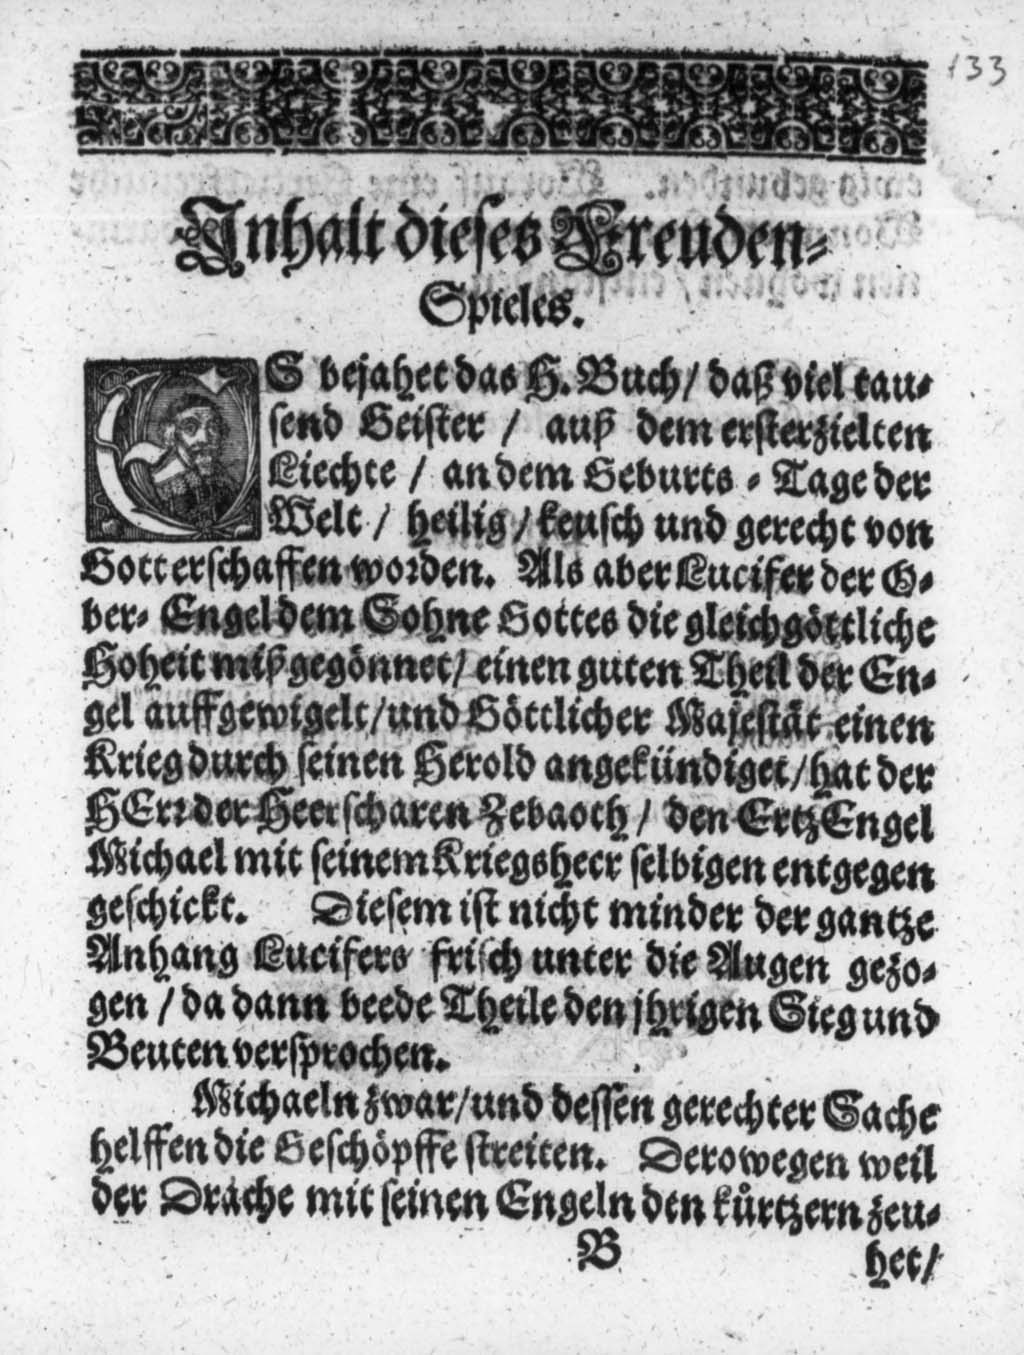 133
Inhalt dieses Freuden-
Spieles.
ES bejahet das H. Buch/ daß viel tau-
send Geister / auß dem ersterzielten
Liechte / an dem Geburts - Tage der
Welt / heilig / keusch und gerecht von
Gott erschaffen worden. Als aber Lucifer der O-
ber- Engel dem Sohne Gottes die gleichgöttliche
Hoheit mißgegönnet/ einen guten Theil der En-
gel auffgewigelt/und Göttlicher Majestät einen
Krieg durch seinen Herold angekündiget/hat der
HErr der Heerscharen Zebaoth/ den ErtzEngel
Michael mit seinem Kriegsheer selbigen entgegen
geschickt. Diesem ist nicht minder der gantze
Anhang Lucifers frisch unter die Augen gezo-
gen / da dann beede Theile den jhrigen Sieg und
Beuten versprochen.
Michaeln zwar/und dessen gerechter Sache
helffen die Geschöpffe streiten. Derowegen weil
der Drache mit seinen Engeln den kůrtzern zeu-
B het/